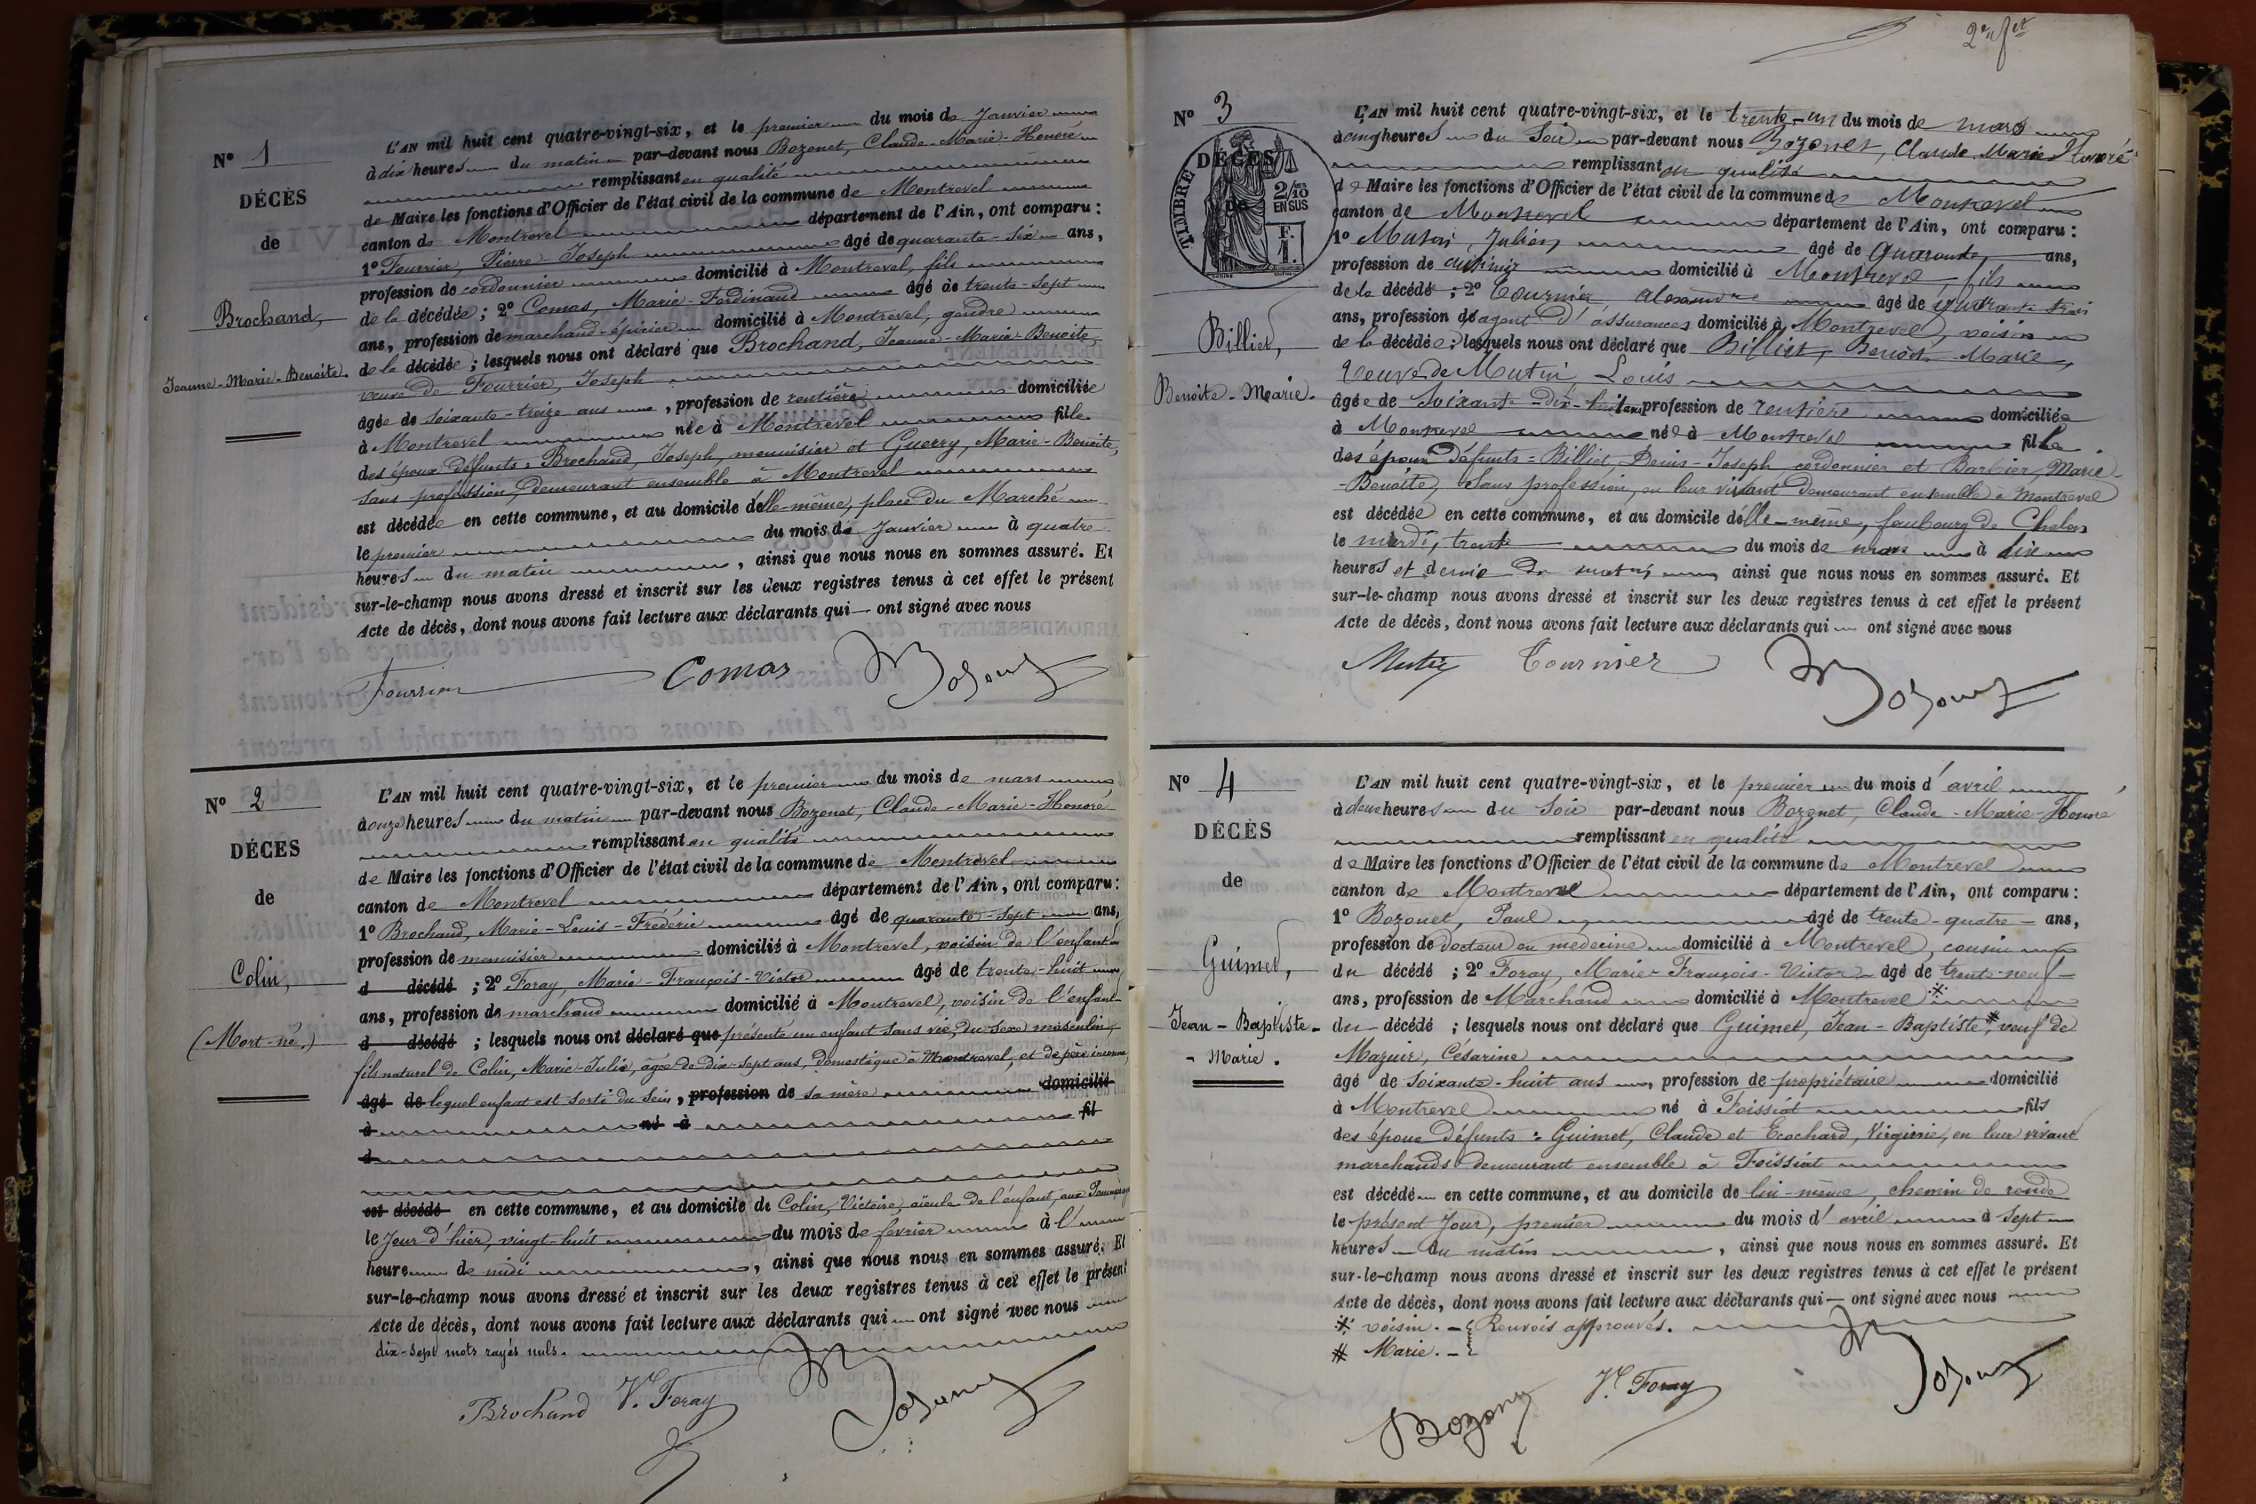 N° 1
DÉCÈS
de
Brochand,
Jeanne-Marie-Benoite.
L'AN mil huit cent quatre-vingt-six, et le premier du mois de Janvier
à dix heures du matin par-devant nous Bozonet, Claude-Marie-Honoré
remplissant en qualité
de Maire les fonctions d'Officier de l'état civil de la commune de Montrevel
canton de Montrevel département de l'Ain, ont comparu :
1° Fourrier, Pierre-Joseph âgé de quarante-six ans,
profession de cordonnier domicilié à Montrevel, fils
de la décédée ; 2° Comas, Marie-Ferdinand âgé de trente-sept
ans, profession de marchand-épicier domicilié à Montrevel, gendre
de la décédée ; lesquels nous ont déclaré que Brochand, Jeanne-Marie-Benoite,
veuve de Fourrier, Joseph
âgée de soixante-treize ans, profession de rentière domiciliée
à Montrevel née à Montrevel fille
des époux défunts : Brochand, Joseph, menuisier et Guerry, Marie-Benoite,
sans profession, demeurant ensemble à Montrevel
est décédée en cette commune, et au domicile d'elle-même, place du Marché
le premier du mois de Janvier à quatre
heures du matin, ainsi que nous nous en sommes assuré. Et
sur-le-champ nous avons dressé et inscrit sur les deux registres tenus à cet effet le présent
Acte de décès, dont nous avons fait lecture aux déclarants qui ont signé avec nous
Fourrier Comas Bozonet
N° 2
DÉCES
de
Colin,
(Mort-né.)
L'AN mil huit cent quatre-vingt-six, et le premier du mois de mars
à onze heures du matin par-devant nous Bozonet, Claude-Marie-Honoré
remplissant en qualité
de Maire les fonctions d'Officier de l'état civil de la commune de Montrevel
canton de Montrevel département de l'Ain, ont comparu :
1° Brochand, Marie-Louis-Frédéric âgé de quarante-sept ans,
profession de menuisier domicilié à Montrevel, voisin de l'enfant
d décédé ; 2° Foray, Marie-François-Victor âgé de trente-huit
ans, profession de marchand domicilié à Montrevel, voisin de l'enfant
d décédé ; lesquels nous ont déclaré que présenté un enfant sans vie, du sexe masculin,
fils naturel de Colin, Marie-Julie, âgée de dix-sept ans, domestique à Montrevel, et de père inconnu,
âgé de lequel enfant est sorti du sein, profession de sa mère domicilié
à né à fil
d
est décédé en cette commune, et au domicile de Colin, Victoire, aïeule de l'enfant, aux
le jour d'hier, vingt-huit du mois de février à l'
heure de midi, ainsi que nous nous en sommes assuré. Et
sur-le-champ nous avons dressé et inscrit sur les deux registres tenus à cet effet le présent
Acte de décès, dont nous avons fait lecture aux déclarants qui ont signé avec nous
dix-sept mots rayés nuls.
Brochand Vr Foray Bozonet
2e fet
N° 3
DÉCÈS
de
TIMBRE
2/10 EN SUS
F. 1.
Billiet,
Benoite-Marie.
L'AN mil huit cent quatre-vingt-six, et le trente-un du mois de mars
à cinq heures du Soir par-devant nous Bozonet, Claude Marie Honoré
remplissant en qualité
de Maire les fonctions d'Officier de l'état civil de la commune de Montrevel
canton de Montrevel département de l'Ain, ont comparu :
1° Mutin, Julien, âgé de Quarante, ans,
profession de domicilié à Montrevel, fils
de la décédé ; 2° Tournier Alexandre âgé de quarante trois
ans, profession d'agent d'assurances domicilié à Montrevel, voisin
de la décédée ; lesquels nous ont déclaré que Billiet, Benoite Marie,
Veuve de Mutin Louis
âgée de Soixante-dix-huit ans profession de rentière domiciliée
à Montrevel née à Montrevel fille
des époux défunts = Billiet, Denis-Joseph cordonnier et Barbier, Marie
-Benoite, sans profession, en leur vivant demeurant ensemble à Montrevel
est décédée en cette commune, et au domicile d'elle-même, faubourg de Chalon
le mardi, trente du mois de mars à dix
heures et demie du matin, ainsi que nous nous en sommes assuré. Et
sur-le-champ nous avons dressé et inscrit sur les deux registres tenus à cet effet le présent
Acte de décès, dont nous avons fait lecture aux déclarants qui ont signé avec nous
Mutin Tournier Bozonet
N° 4
DÉCÈS
de
Guimet,
Jean-Baptiste-
-Marie.
L'AN mil huit cent quatre-vingt-six, et le premier du mois d'avril
à deux heures du Soir par-devant nous Bozonet, Claude-Marie-Honoré
remplissant en qualité
de Maire les fonctions d'Officier de l'état civil de la commune de Montrevel
canton de Montrevel département de l'Ain, ont comparu :
1° Bozonet, Paul, âgé de trente-quatre ans,
profession de docteur en médecine domicilié à Montrevel, cousin
du décédé ; 2° Foray, Marie-François-Victor âgé de trente-neuf
ans, profession de Marchand domicilié à Montrevel ※
du décédé ; lesquels nous ont déclaré que Guimet, Jean-Baptiste # veuf de
Mazuir, Césarine
âgé de soixante-huit ans, profession de propriétaire domicilié
à Montrevel né à Foissiat fils
des époux défunts : Guimet, Claude et Ecochard, Virginie, en leur vivant
marchands demeurant ensemble à Foissiat
est décédé en cette commune, et au domicile de lui-même, chemin de ronde
le présent jour, premier du mois d'avril à sept
heures du matin, ainsi que nous nous en sommes assuré. Et
sur-le-champ nous avons dressé et inscrit sur les deux registres tenus à cet effet le présent
Acte de décès, dont nous avons fait lecture aux déclarants qui ont signé avec nous
※ voisin. - Renvois approuvés.
# Marie. -
Bozonet Vr Foray Bozonet